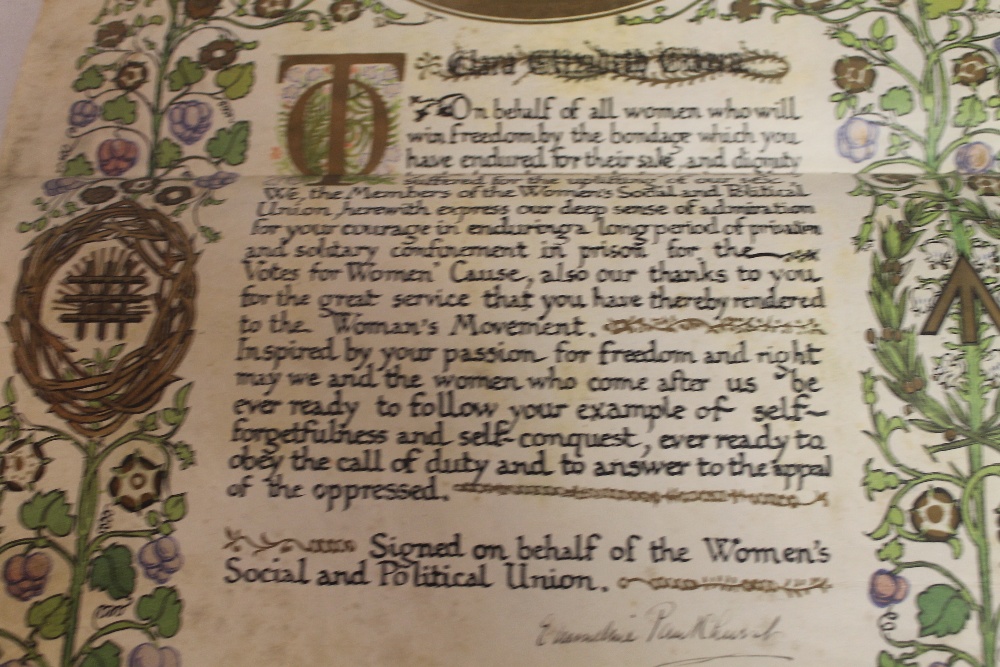 To Clara Elizabeth
On behalf of all women who will
win freedom by the bondage which you
have endured for their sake, and dignity
suffered for the uplifting of our sex,
We, the Members of the Women's Social and Political
Union, herewith express our deep sense of admiration
for your courage in enduring a long period of privation
and solitary confinement in prison for the
Votes for Women" Cause, also our thanks to you
for the great service that you have thereby rendered
to the Woman's Movement.
Inspired by your passion for freedom and right
may we and the women who come after us be
ever ready to follow your example of self-
forgetfulness and self-conquest, ever ready to
obey the call of duty and to answer to the appal
of the oppressed.
Signed on behalf of the Women's
Social and Political Union.
Emmeline Pankhurst